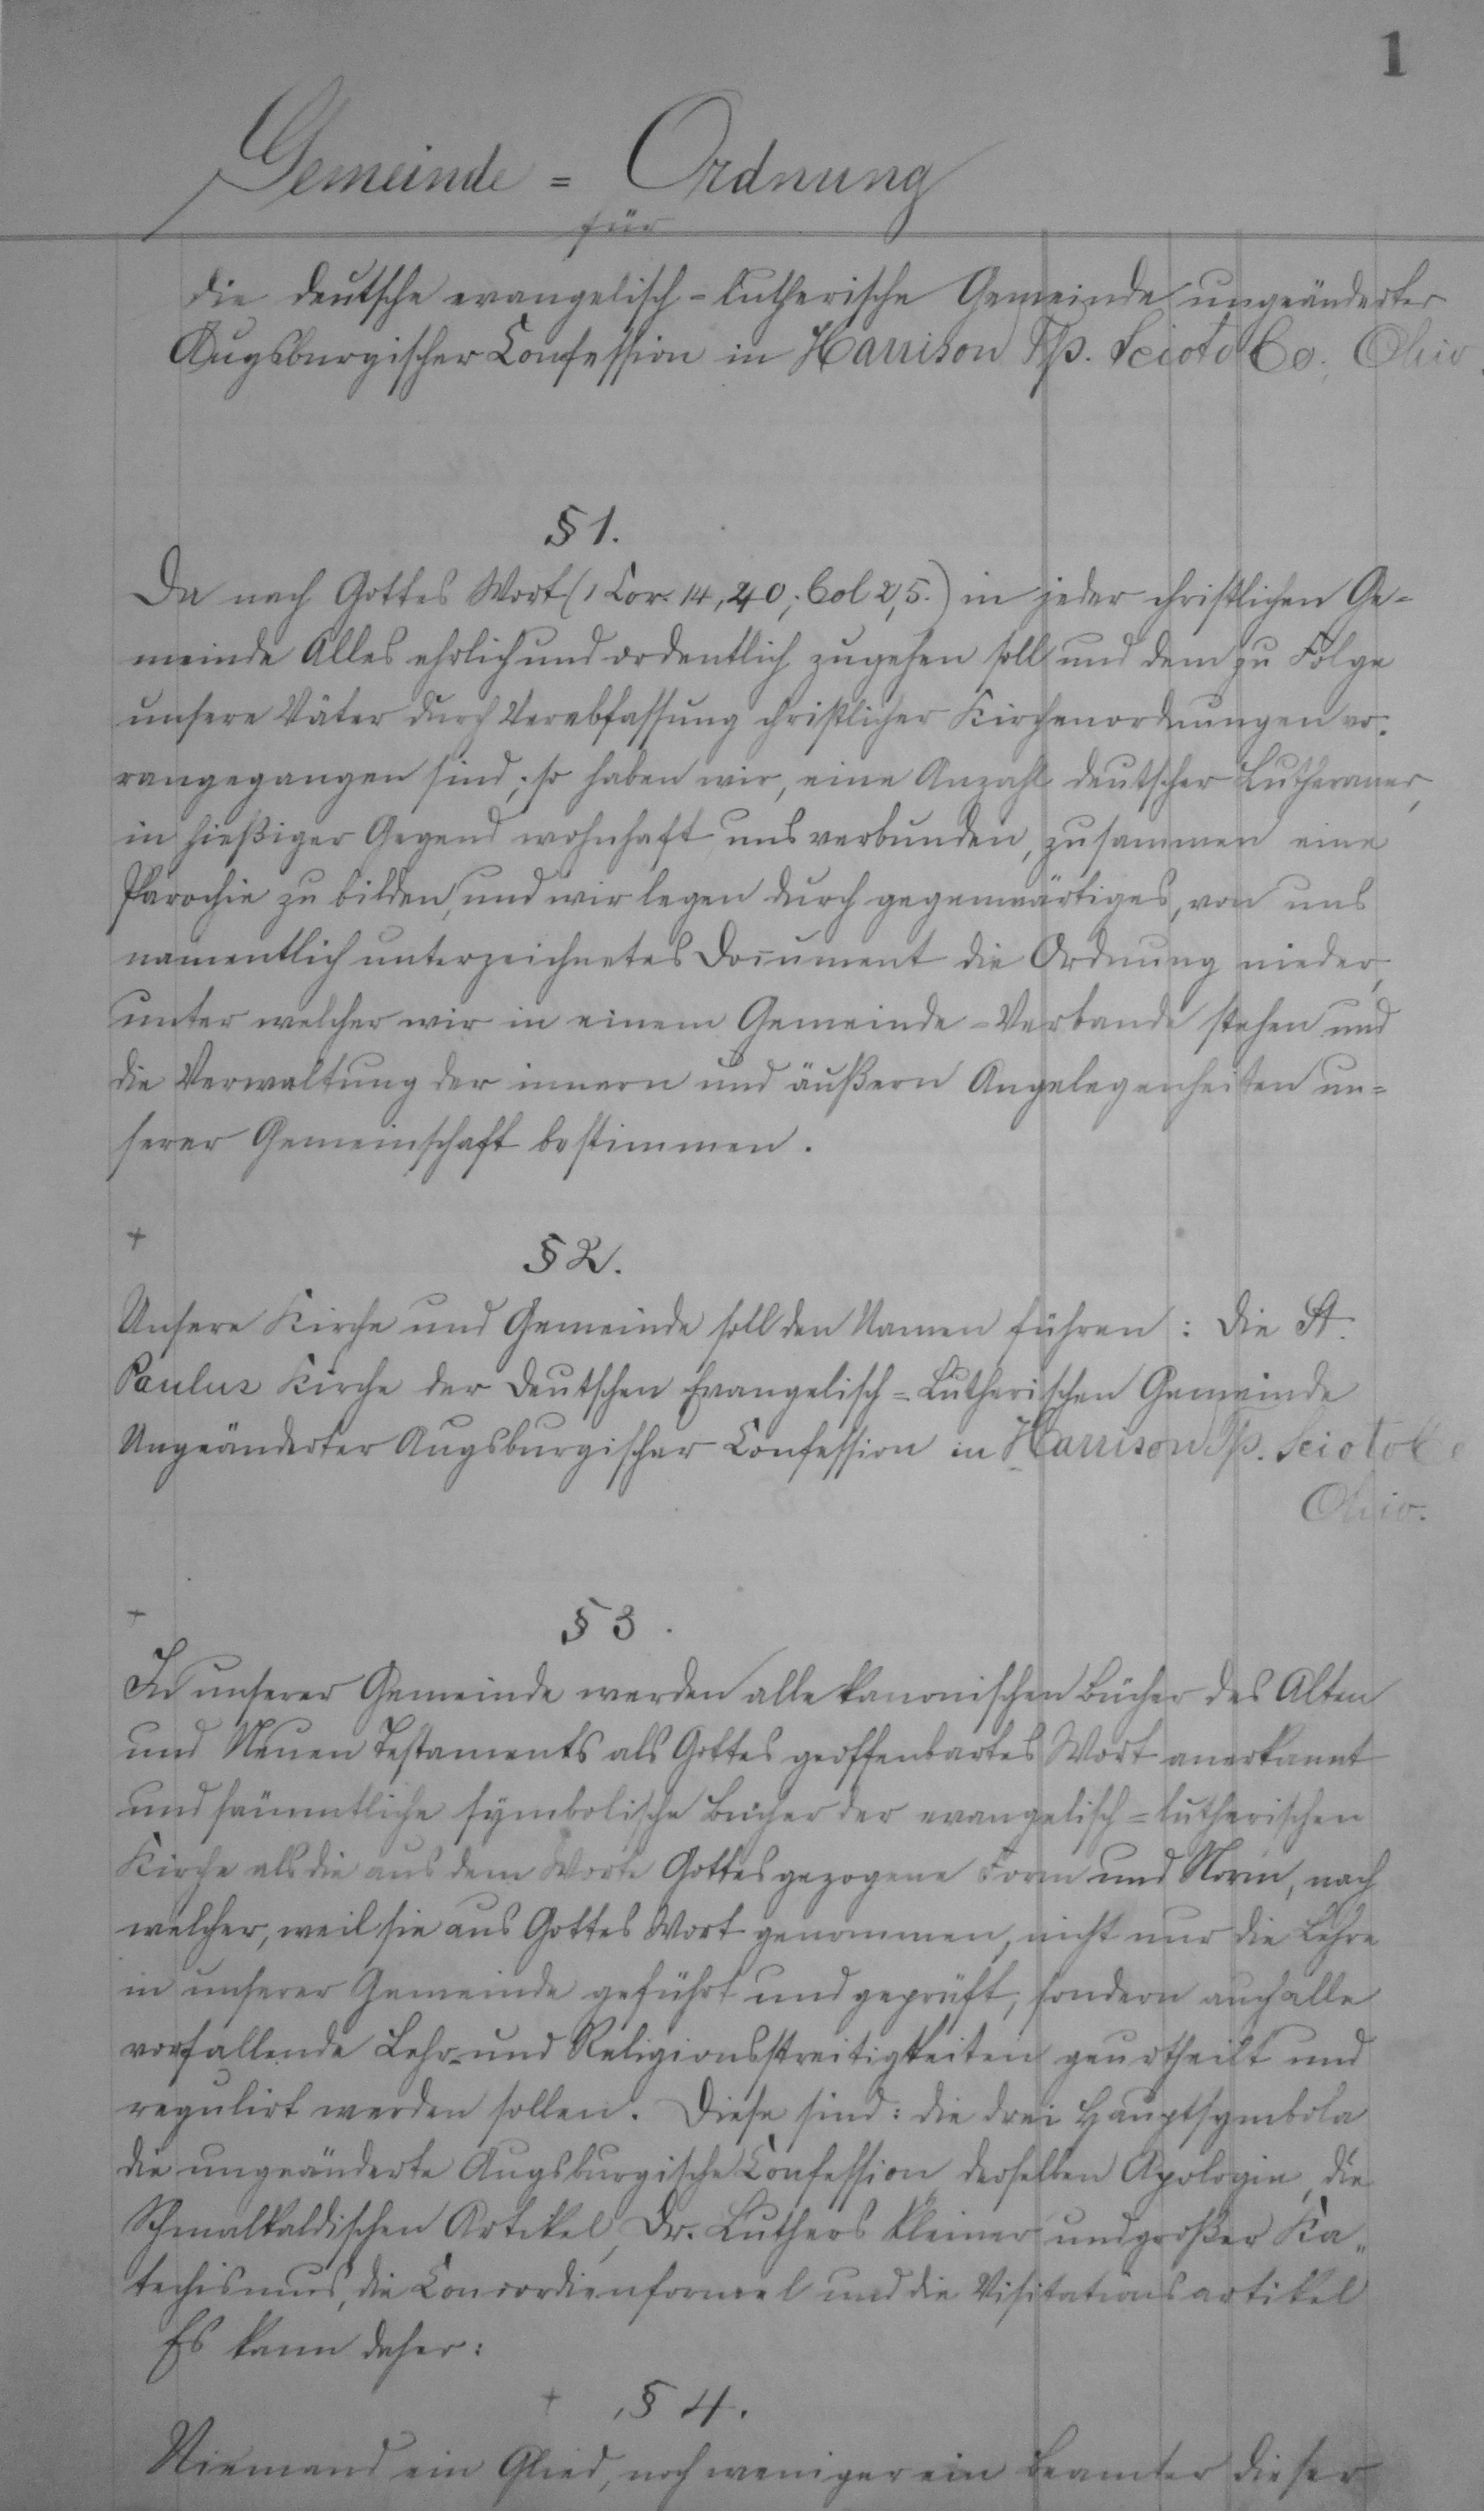 1
Gemeinde = Ordnung
für
die deutsche evangelisch = lutherische Gemeinde ungeänderter
Augsburgischer Confession in Harrison Tp. Scioto Co., Ohio.
§ 1.
Da nach Gottes Wort (1 Cor. 14, 40; Col 2, 5.) in jeder christlichen Ge=
meinde Alles ehrlich und ordentlich zugehen soll und dem zu Folge
unsere Väter durch Verabfassung christlicher Kirchenordnungen vo-
rangegangen sind; so haben wir, eine Anzahl deutscher Lutheraner,
in hießiger Gegend wohnhaft uns verbunden, zusammen eine
Parochie zu bilden, und wir legen durch gegenwärtiges, von uns
namentlich unterzeichnetes Document die Ordnung nieder,
unter welcher wir in einem Gemeinde = Verbande stehen und
die Verwaltung der innern und äußern Angelegenheiten un=
serer Gemeinschaft bestimmen.
+
§ 2.
Unsere Kirche und Gemeinde soll den Namen führen: Die St.
Paulus Kirche der Deutschen Evangelisch = Lutherischen Gemeinde
Ungeänderter Augsburgischer Confession in Harrison Tp. Scioto Co
Ohio.
+
§ 3.
In unserer Gemeinde werden alle kanonischen Bücher des Alten
und Neuen Testaments als Gottes geoffenbartes Wort anerkannt
und sämmtliche symbolische Bücher der evangelisch = lutherischen
Kirche als die aus dem Worte Gottes gezogene Form und Norm, nach
welcher, weil sie aus Gottes Wort genommen, nicht nur die Lehre
in unserer Gemeinde geführt und geprüft, sondern auch alle
vorfallende Lehr- und Religionsstreitigkeiten geurtheilt und
regulirt werden sollen. Diese sind: die drei Hauptsymbola
die ungeänderte Augsburgische Confession, derselben Apologie, die
Schmalkaldischen Artikel, Dr. Luthers kleiner und großer Ka-
techismus, die Concordienformel und die Visitationsartikel
Es kann daher:
+ § 4.
Niemand ein Glied, noch weniger ein Beamter dieser